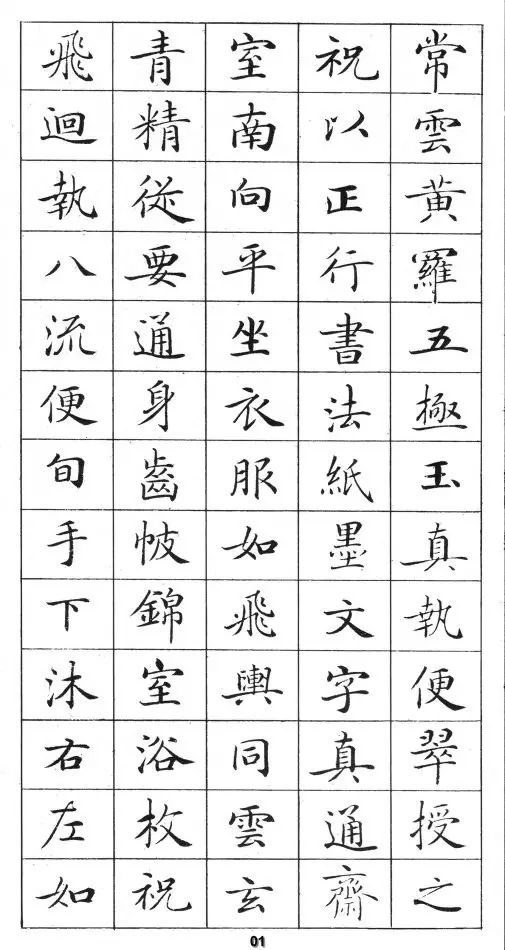 常雲黃羅五極玉真執便翠授之
祝以正行書法紙墨文字真通齋
室南向平坐衣服如飛輿同雲玄
青精從要通身齒帔錦室浴枚祝
飛迴執八流便旬手下沐右左如
01